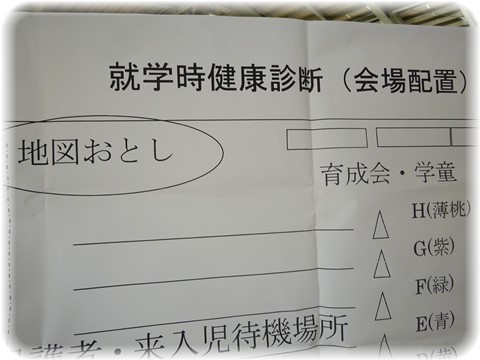 就学時健康診断（会場配置）
地図おとし
育成会・学童
H(薄桃)
G(紫)
F(緑)
E(青)
護者・来入児待機場所